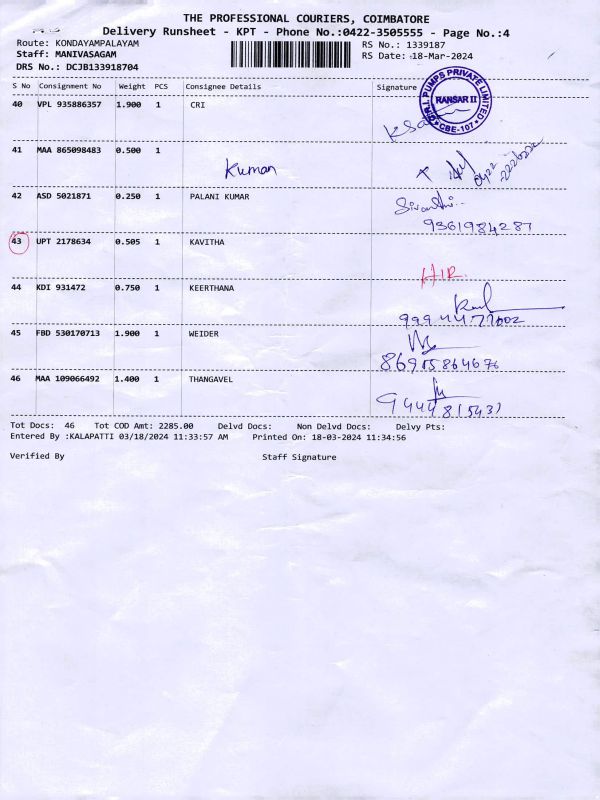 THE PROFESSIONAL COURIERS, COIMBATORE
Delivery Runsheet - KPT - Phone No.:0422-3505555 - Page No.:4
Route: KONDAYAMPALAYAM
RS No.: 1339187
Staff: MANIVASAGAM
RS Date: 18-Mar-2024
DRS No.: DCJB133918704
S No Consignment No Weight PCS Consignee Details Signature
40 VPL 935886357 1.900 1 CRI
C.R.I. PUMPS PRIVATE LIMITED
RANSAR II
CBE-107
41 MAA 865098483 0.500 1
Kuman
0422
42 ASD 5021871 0.250 1 PALANI KUMAR
9361984287
43 UPT 2178634 0.505 1 KAVITHA
44 KDI 931472 0.750 1 KEERTHANA
45 FBD 530170713 1.900 1 WEIDER
46 MAA 109066492 1.400 1 THANGAVEL
Tot Docs: 46 Tot COD Amt: 2285.00 Delvd Docs: Non Delvd Docs: Delvy Pts:
Entered By :KALAPATTI 03/18/2024 11:33:57 AM Printed On: 18-03-2024 11:34:56
Verified By Staff Signature